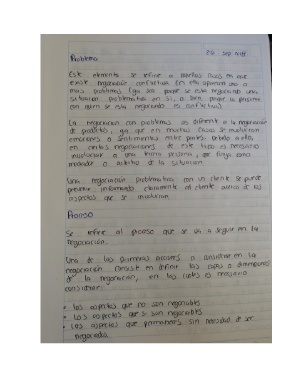 26 sep
Problema
Este elemento se refiere a aquellos casos en que
existe negociación conflictiva (en ella aparecen uno o
mas problemas (ya sea porque se esta negociando una
situacion problematica en si, o bien, porque la persona
con quien se esta negociando es conflictiva)
La negociacion con problemas es diferente a la negociación
de productos, ya que en muchos casos se involucran
emociones o sentimientos entre partes, debido a ello
en ciertas negociaciones de este tipo es necesario
involucrar a una tercera persona, que funja como
mediador o arbitro de la situacion.
Una negociación problematica con un cliente se puede
prevenir informando claramente al cliente acerca de los
aspectos que se involucran
Proceso
Se refiere al proceso que se va a seguir en la
negociación.
Una de las primeras acciones a considerar en la
negociación consiste en definir los o dimensiones
de la negociación, en las cuales es necesario
considerar:
• los aspectos que no son negociables
• Los aspectos que si son negociables
• Los aspectos que permanecen sin necesidad de ser
negociados